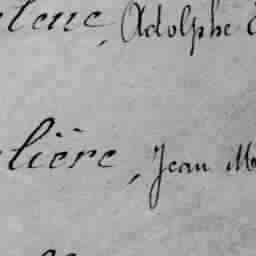 elene, Adolphe
lière, Jean